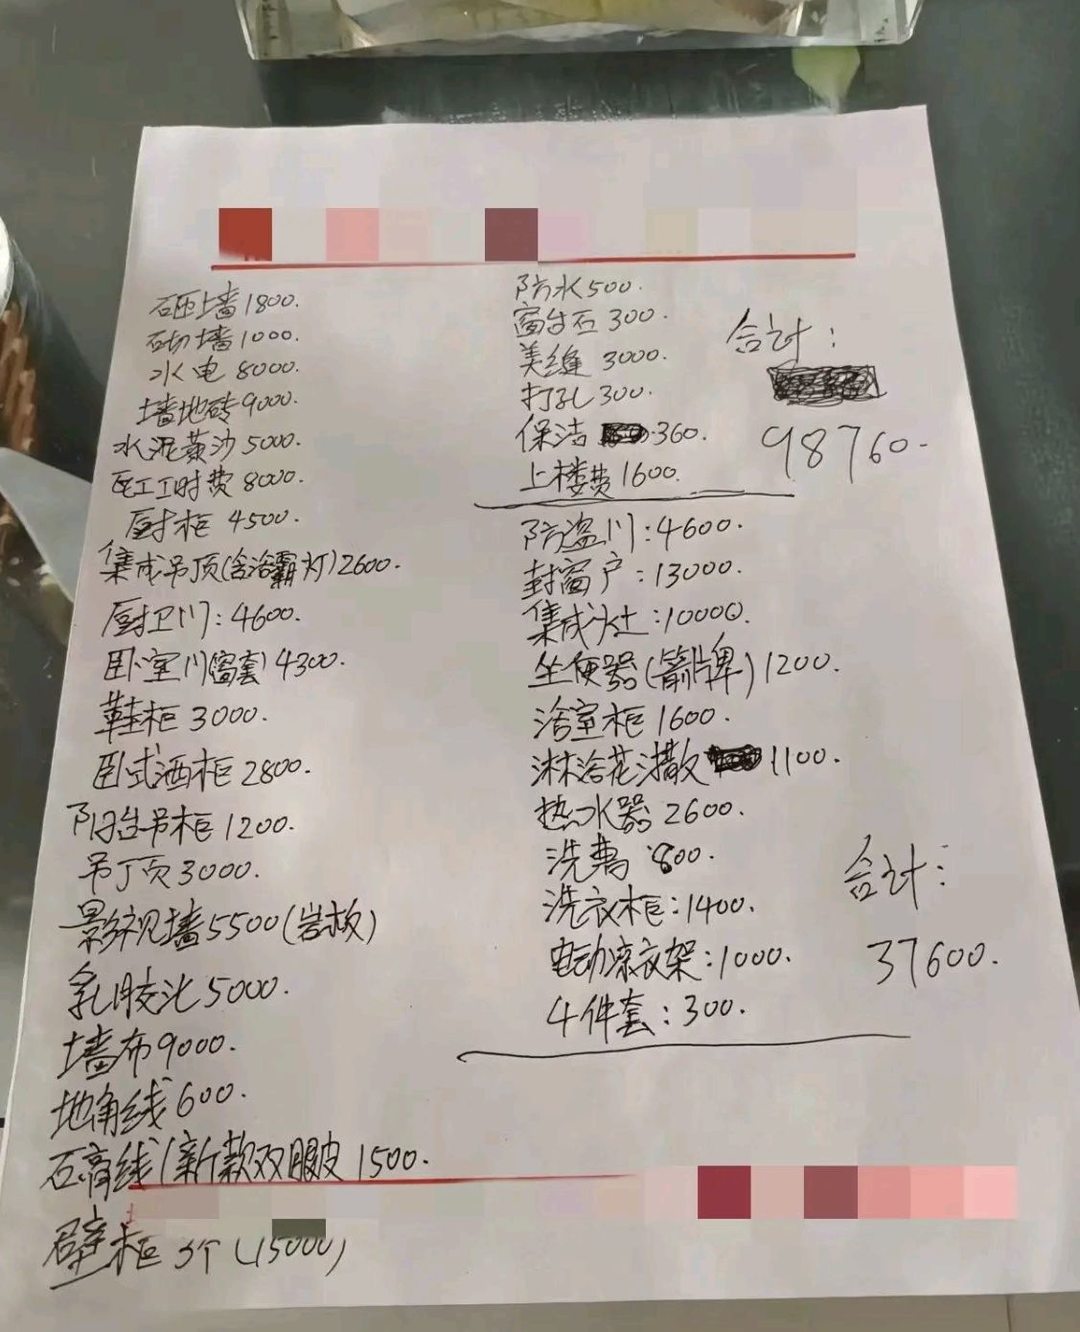 砸墙1800.
砌墙1000.
水电8000.
墙地砖9000.
水泥黄沙5000.
瓦工工时费8000.
厨柜4500.
集成吊顶(含浴霸灯)2600.
厨卫门:4600.
卧室门(窗套)4300.
鞋柜3000.
卧式酒柜2800.
阳台吊柜1200.
吊丁页3000.
影视墙5500(岩板)
乳胶漆5000.
墙布9000.
地角线600.
石膏线(新款双眼皮1500.
壁柜3个(15000)
防水500.
窗台石300.
美缝3000.
打孔300.
保洁360.
上楼费1600.
合计:
98760.
防盗门:4600.
封窗户:13000.
集成灶:10000.
坐便器(箭牌)1200.
浴室柜1600.
淋浴花洒1100.
热水器2600.
洗 800.
洗衣柜:1400.
电动凉衣架:1000.
4件套:300.
合计:
37600.